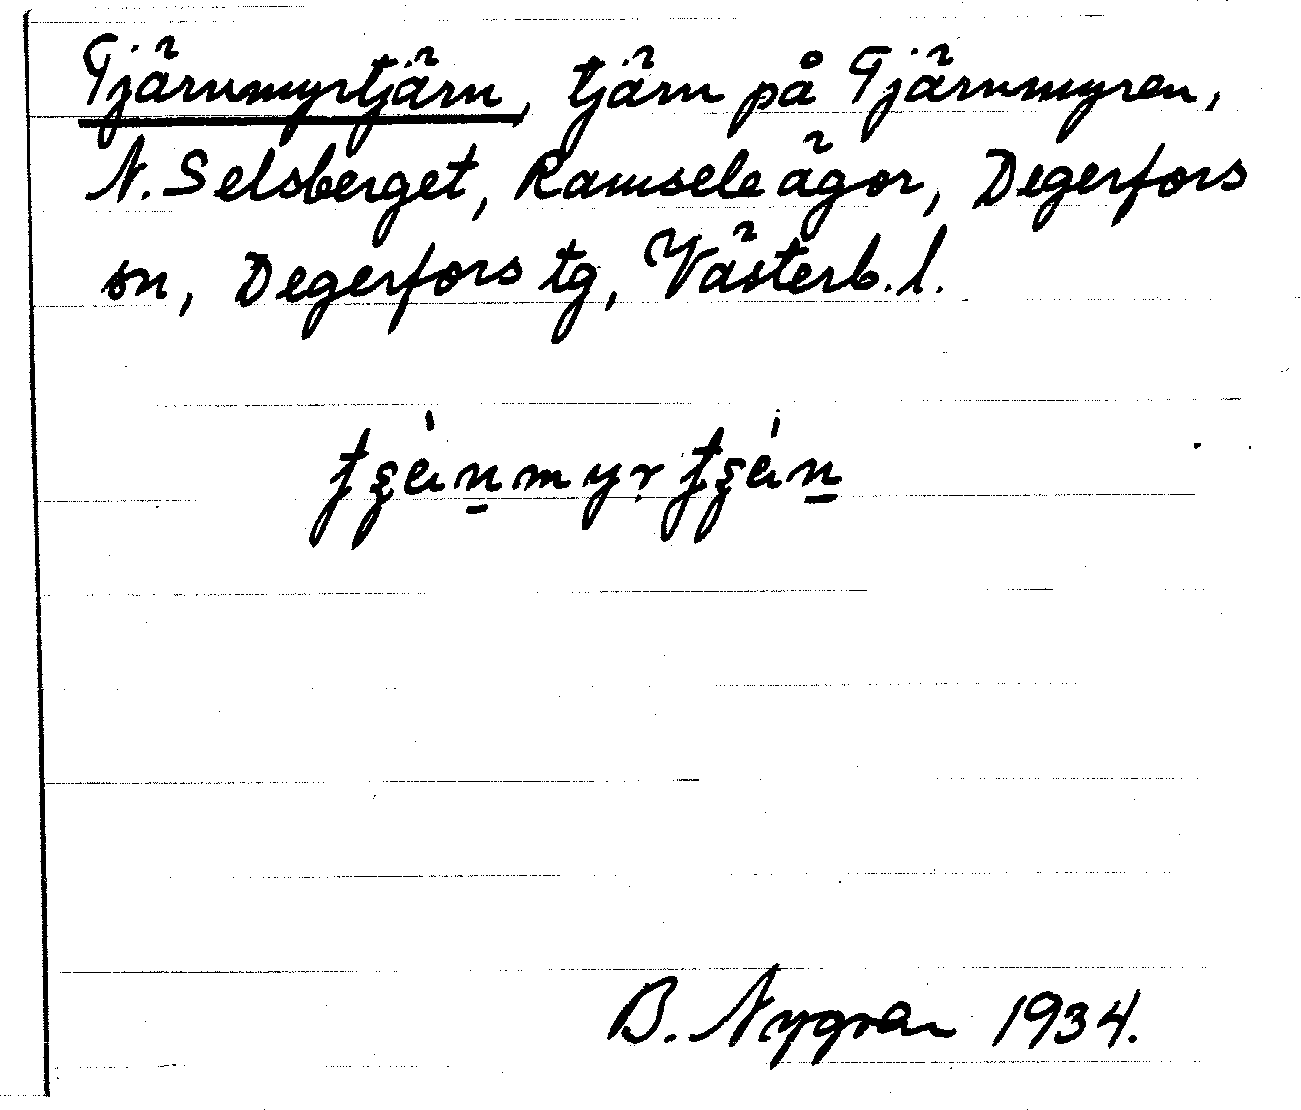 Tjärnmyrtjärn, tjärn på Tjärnmyren,
N. Selsberget, Ramsele ägor, Degerfors
sn, Degerfors tg, Västerb. l.
B. Nygren 1934.